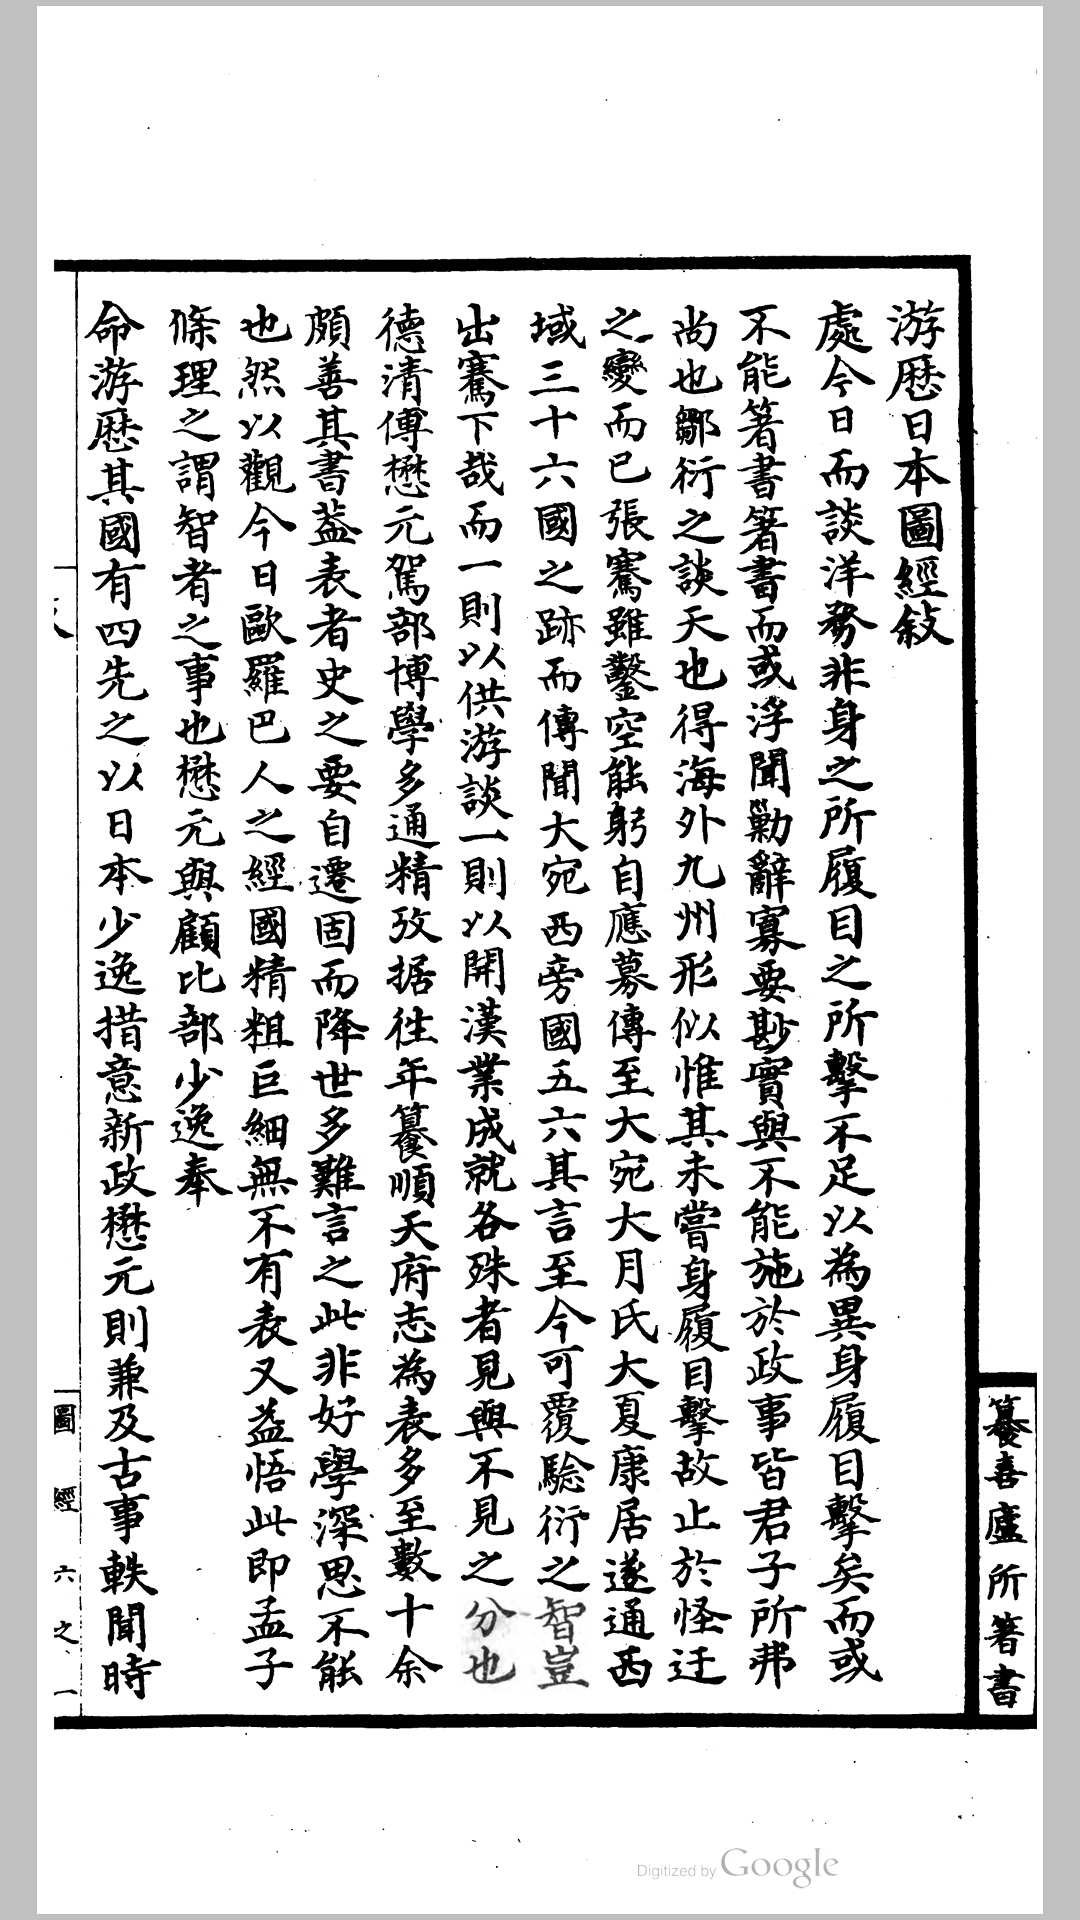 游歷日本圖經敍
處今日而談洋務非身之所履目之所擊不足以為異身履目擊矣而或
不能箸書箸書而或浮聞勦辭寡要尠實與不能施於政事皆君子所弗
尚也鄒衍之談天也得海外九州形似惟其未嘗身履目擊故止於怪迂
之變而已張騫雖鑿空能躬自應募傳至大宛大月氏大夏康居遂通西
域三十六國之跡而傳聞大宛西旁國五六其言至今可覆驗衍之智豈
出騫下哉而一則以供游談一則以開漢業成就各殊者見與不見之分也
德清傅懋元駕部博學多通精攷据往年纂順天府志為表多至數十余
頗善其書葢表者史之要自遷固而降世多難言之此非好學深思不能
也然以觀今日歐羅巴人之經國精粗巨細無不有表又益悟此即孟子
條理之謂智者之事也懋元與顧比部少逸奉
命游歷其國有四先之以日本少逸措意新政懋元則兼及古事軼聞時
圖經六之一
籑喜廬所箸書
Digitized by Google